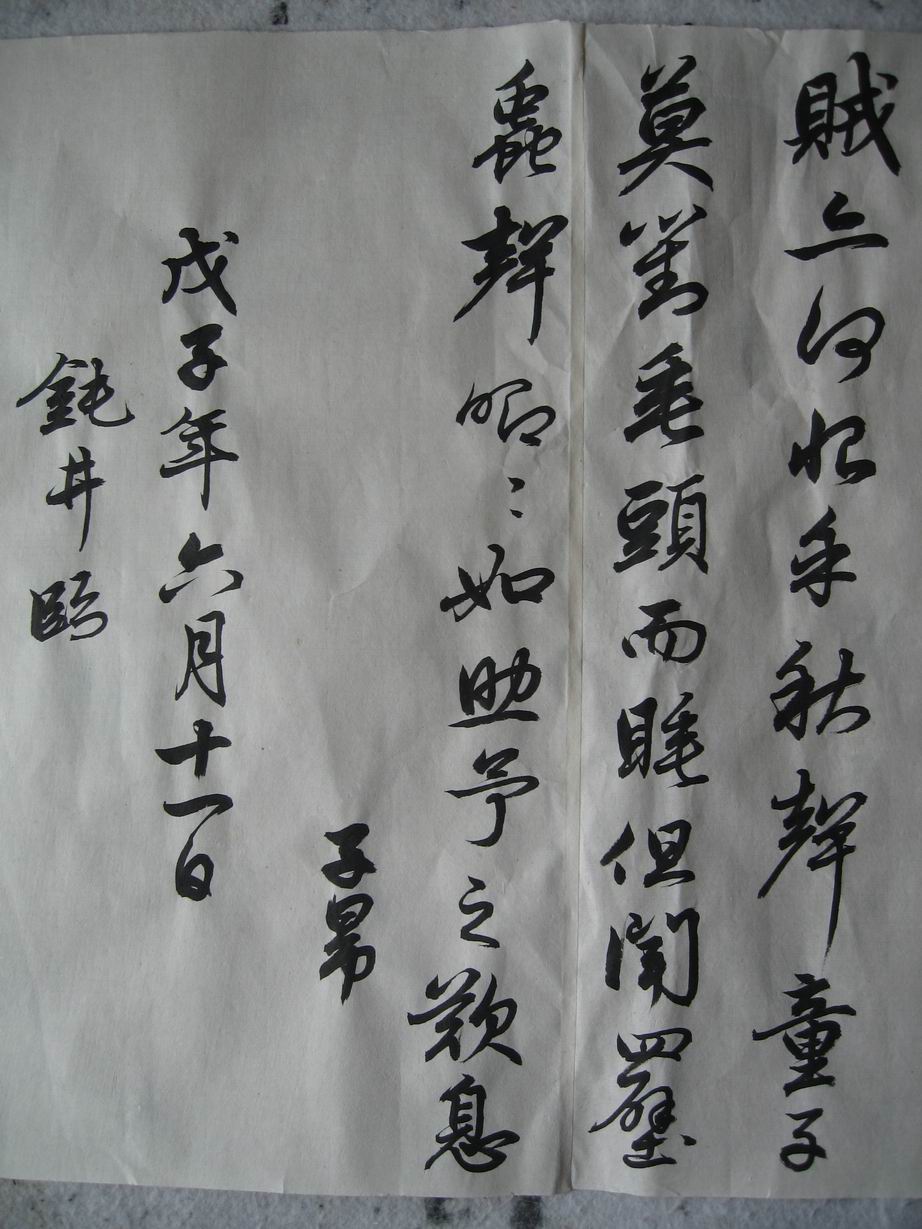 賊亦何恨乎秋聲童子
莫對垂頭而睡但聞四壁
蟲聲唧〻如助予之歎息
子昂
戊子年六月十一日
鈍井臨